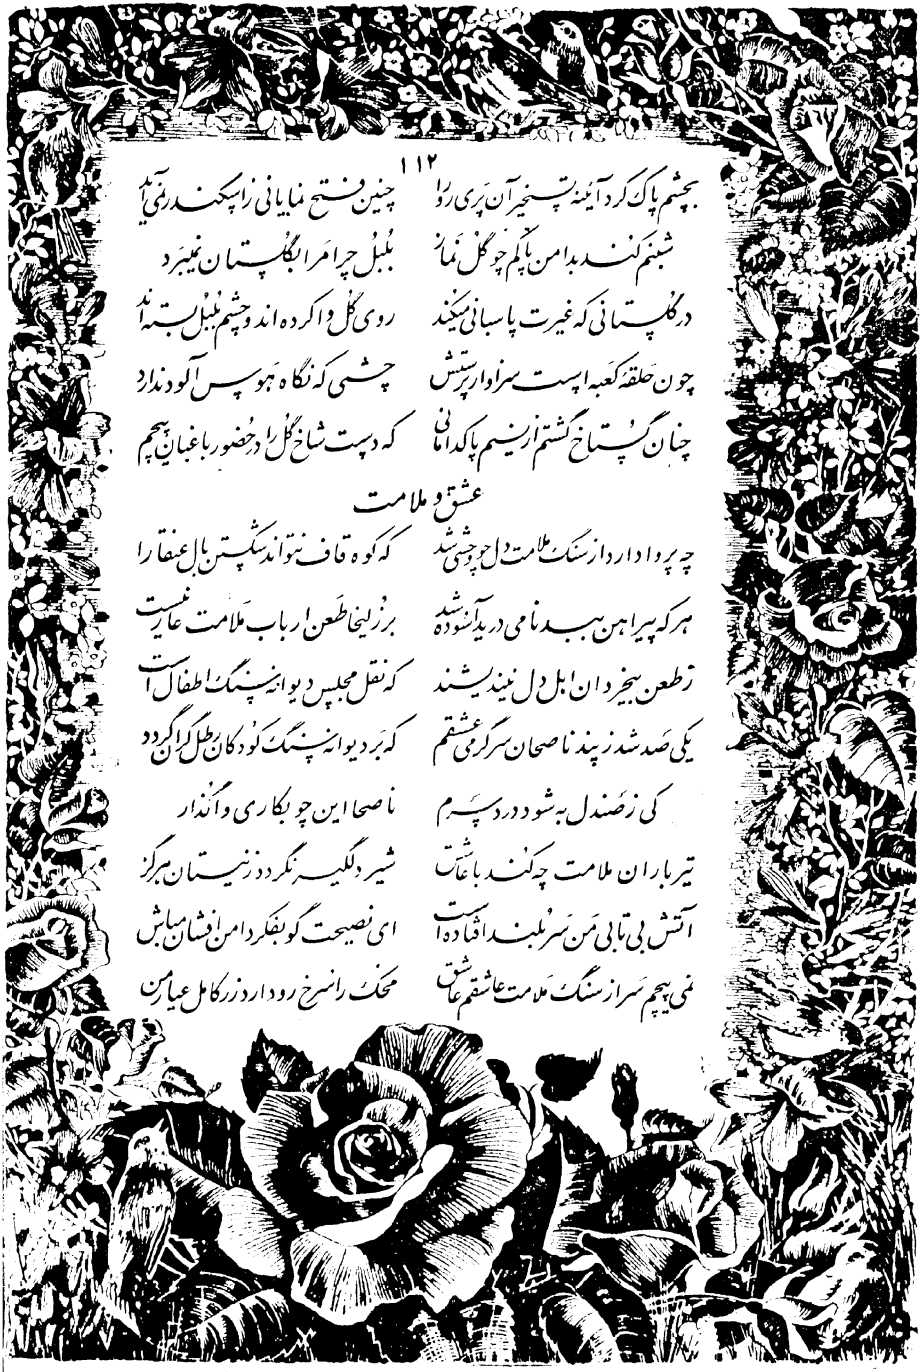 ۱۱۲
بچشم پاک کرد آینه تسخیر آن پری رو را چنین فتح نمایانی ز اسکندر نمی‌آید
شبنم کند بدامن پاکم چو گل نماز بلبل چرا مرا بگلستان نمیبرد
در گلستانی که غیرت پاسبانی میکند روی گل وا کرده اند و چشم بلبل بسته اند
چون حلقه کعبه است سزاوار پرستش چشمی که نگاه هوس آلود ندارد
چنان گستاخ گشتم از نسیم پاکدامانی که دست شاخ گل را در حضور باغبان پیچم
عشق و ملامت
چه پروا دارد از سنگ ملامت دل چو وحشی شد که کوه قاف نتواند شکستن بال عنقا را
هر که پیراهن ببدنامی درید آسوده شد بر زلیخا طعن ارباب ملامت عار نیست
ز طعن بیخردان اهل دل نیندیشند که نقل مجلس دیوانه سنگ اطفال است
یکی صد شد ز پند ناصحان سرگرمی عشقم که بر دیوانه سنگ کودکان رطل گران گردد
کی ز صندل به شود درد سرم ناصحا این چوبکاری واگذار
تیر باران ملامت چه کند با عاشق شیر دلگیر نگردد ز نیستان هرگز
آتش بی تابی من سر بلند افتاده است ای نصیحت گو بفکر دامن افشان مباش
نمی پیچم سر از سنگ ملامت عاشقم عاشق محک را سرخ رو دارد زر کامل عیار من